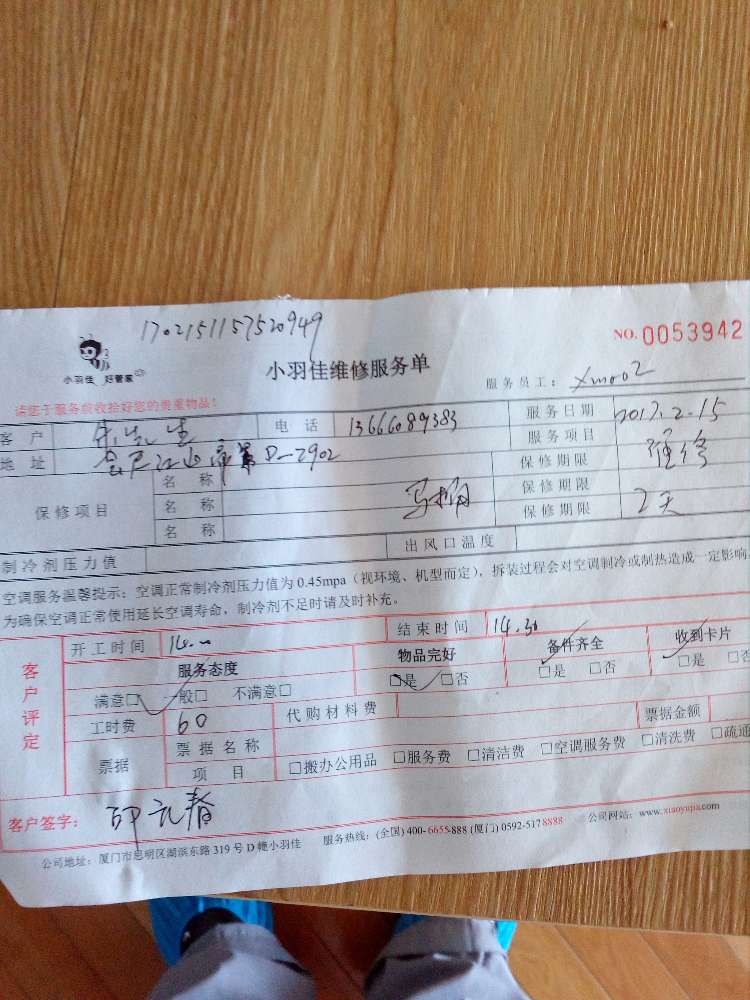 1702151157520949
NO. 0053942
小羽佳 好管家
小羽佳维修服务单
服务员工： xm002
请您于服务前收拾好您的贵重物品！
客 户 朱先生 电 话 13666089383 服务日期 2017.2.15
地 址 D-2902 服务项目 维修
保修项目 名 称 保修期限
名 称 马桶 保修期限
名 称 保修期限 2天
制冷剂压力值 出风口温度
空调服务温馨提示：空调正常制冷剂压力值为 0.45mpa（视环境、机型而定），拆装过程会对空调制冷或制热造成一定影响
为确保空调正常使用延长空调寿命，制冷剂不足时请及时补充。
客户评定
开工时间 14. 结束时间 14.30
服务态度 物品完好 备件齐全 收到卡片
满意□ 一般□ 不满意□ □是 □否 □是 □否 □是 □否
工时费 60 代购材料费 票据金额
票据 票据名称
项 目 □搬办公用品 □服务费 □清洁费 □空调服务费 □清洗费 □疏通
客户签字：
公司地址：厦门市思明区湖滨东路 319 号 D 幢小羽佳 服务热线：(全国) 400-6655-888 (厦门) 0592-517 8888 公司网站：www.xiaoyujia.com